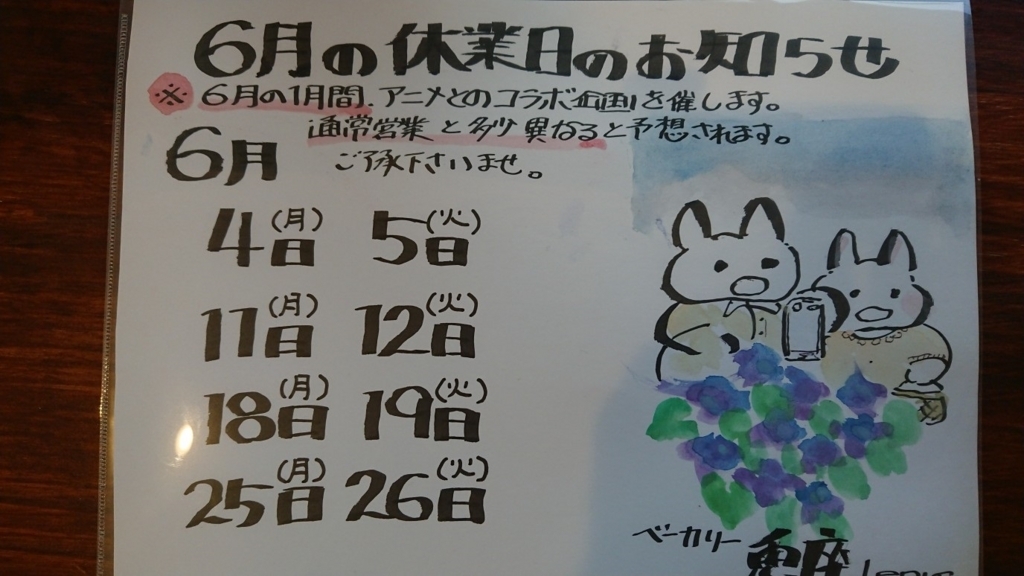 6月の休業日のお知らせ
※6月の1月間、アニメとのコラボ企画を催します。
通常営業と多少異なると予想されます。
ご承下さいませ。
6月
4日(月) 5日(火)
11日(月) 12日(火)
18日(月) 19日(火)
25日(月) 26日(火)
ベーカリー